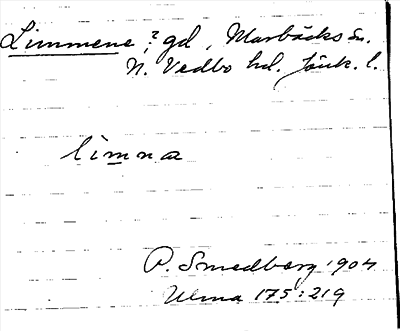 Limmene, ? gd, Marbäcks sn.
N. Vedbo hd. Jönk. l.
limna
P. Smedberg 1904
Ulma 175:219